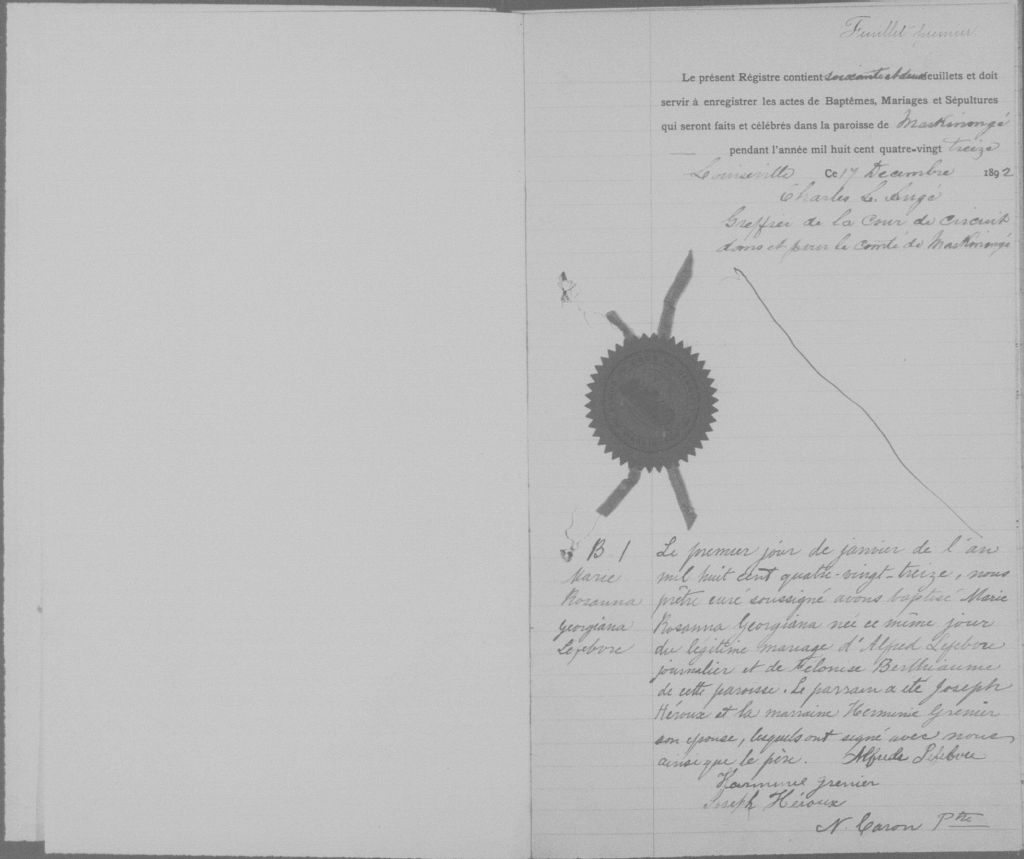 Feuillet premier
Le présent Régistre contient soixante et deux feuillets et doit
servir à enregistrer les actes de Baptêmes, Mariages et Sépultures
qui seront faits et célébrés dans la paroisse de Maskinongé
pendant l'année mil huit cent quatre-vingt treize
Louiseville Ce 17 Decembre 1892
Charles L. Augé
Greffier de la Cour de circuit
dans et pour le comté de Maskinongé
B 1
Marie
Rosanna
Georgiana
Lefebvre
Le premier jour de janvier de l'an
mil huit cent quatre-vingt-treize, nous
prêtre curé soussigné avons baptisé Marie
Rosanna Georgiana née ce même jour
du légitime mariage d'Alfred Lefebvre
journalier et de Felonise Berthiaume
de cette paroisse. Le parrain a été Joseph
Héroux et la marraine Herminie Grenier
son epouse, lesquels ont signé avec nous
ainsi que le père. Alfred Lefebvre
Harminie grenier
Joseph Héroux
N. Caron Ptre